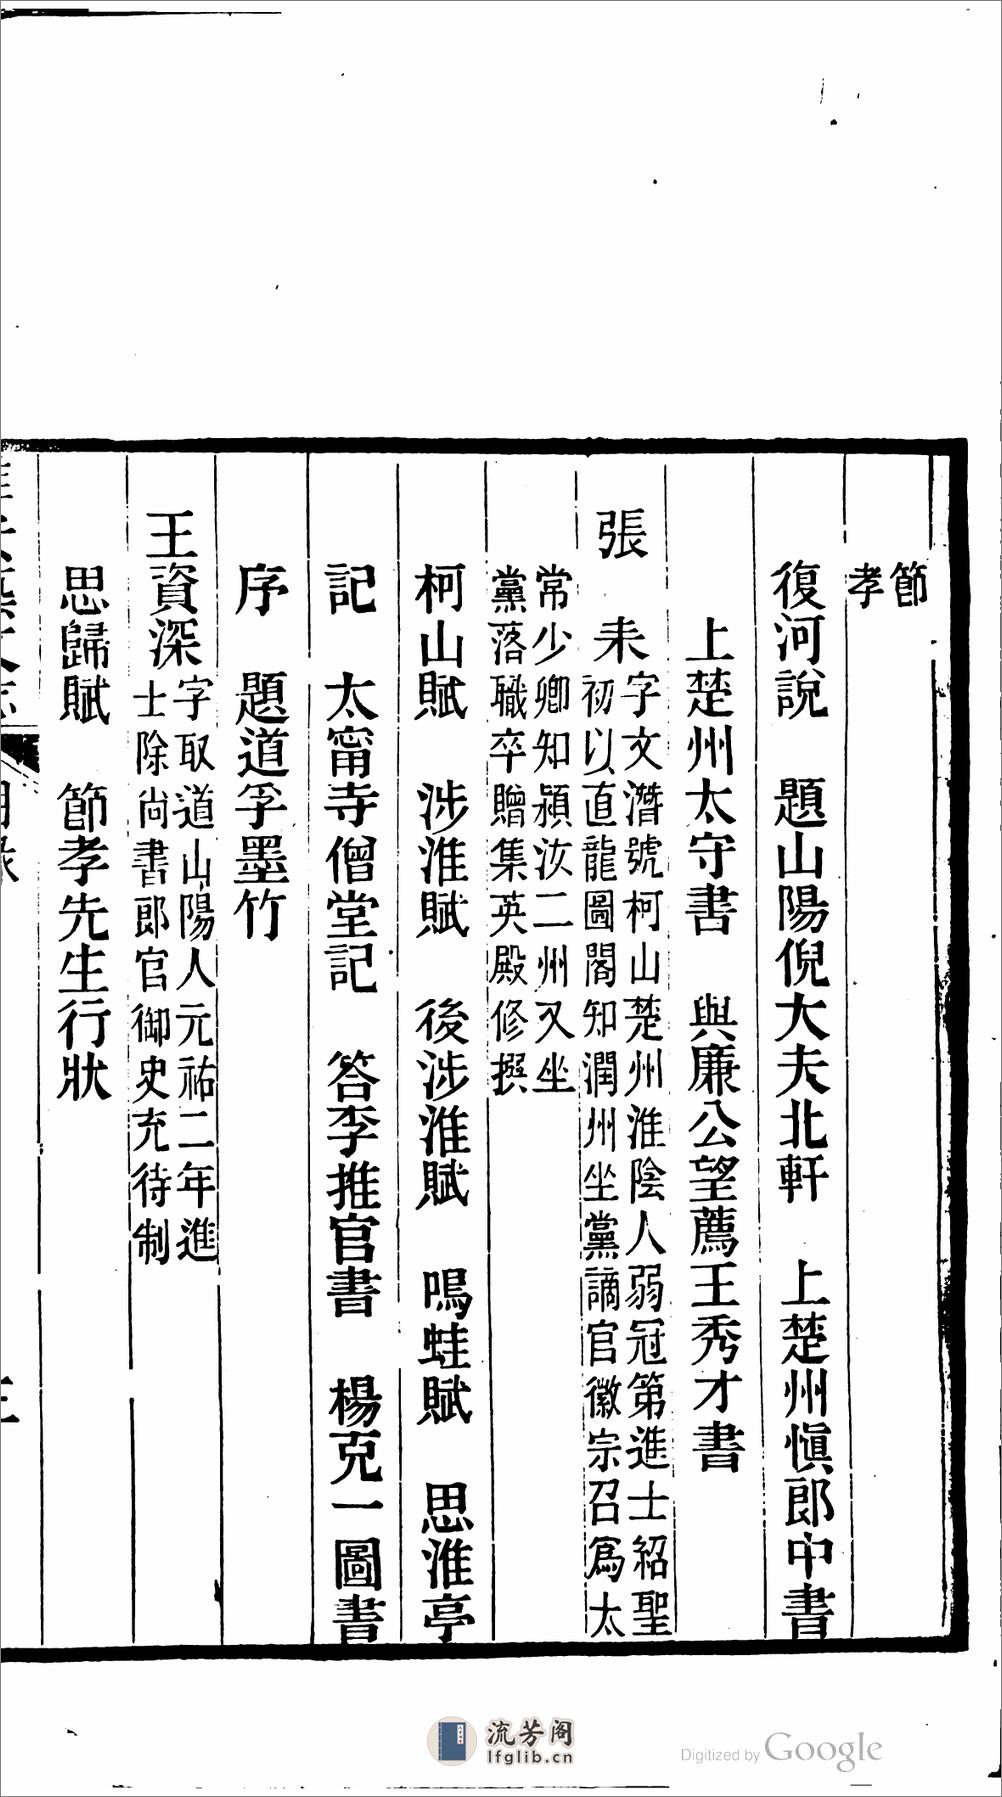 節
孝
復河說　題山陽倪大夫北軒　上楚州愼郎中書
上楚州太守書　與廉公望薦王秀才書
張　耒
字文潛號柯山楚州淮陰人弱冠第進士紹聖
初以直龍圖閣知潤州坐黨謫官徽宗召爲太
常少卿知潁汝二州又坐
黨落職卒贈集英殿修撰
柯山賦　涉淮賦　後涉淮賦　鳴蛙賦　思淮亭
記　太甯寺僧堂記　答李推官書　楊克一圖書
序　題道孚墨竹
王資深
字取道山陽人元祐二年進
士除尚書郎官御史充待制
思歸賦　節孝先生行狀
流芳阁
lfglib.cn
Digitized by Google